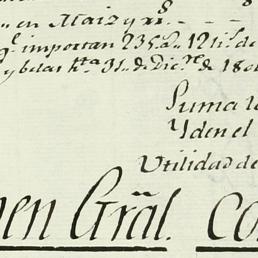 en Maiz y
q.e importan 235.a 12 1/2 de
y belas h.ta 31. de Dic.re de 18
Suma l
Y den el
Utilidad de
en Grãl. co